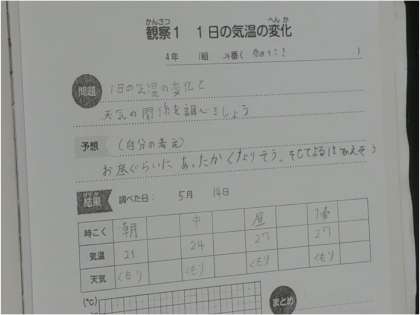 かんさつ へんか
観察1 1日の気温の変化
4年 1組
問題 1日の気温の変化と
天気の関係を調べましょう
予想 (自分の考え)
お昼ぐらいに あったかくなりそう。そしてよるはひえそう
けっか
結果 調べた日: 5月 14日
時こく 朝 中 昼
気温 21 24 27 27
天気 くもり くもり くもり くもり
(℃) まとめ